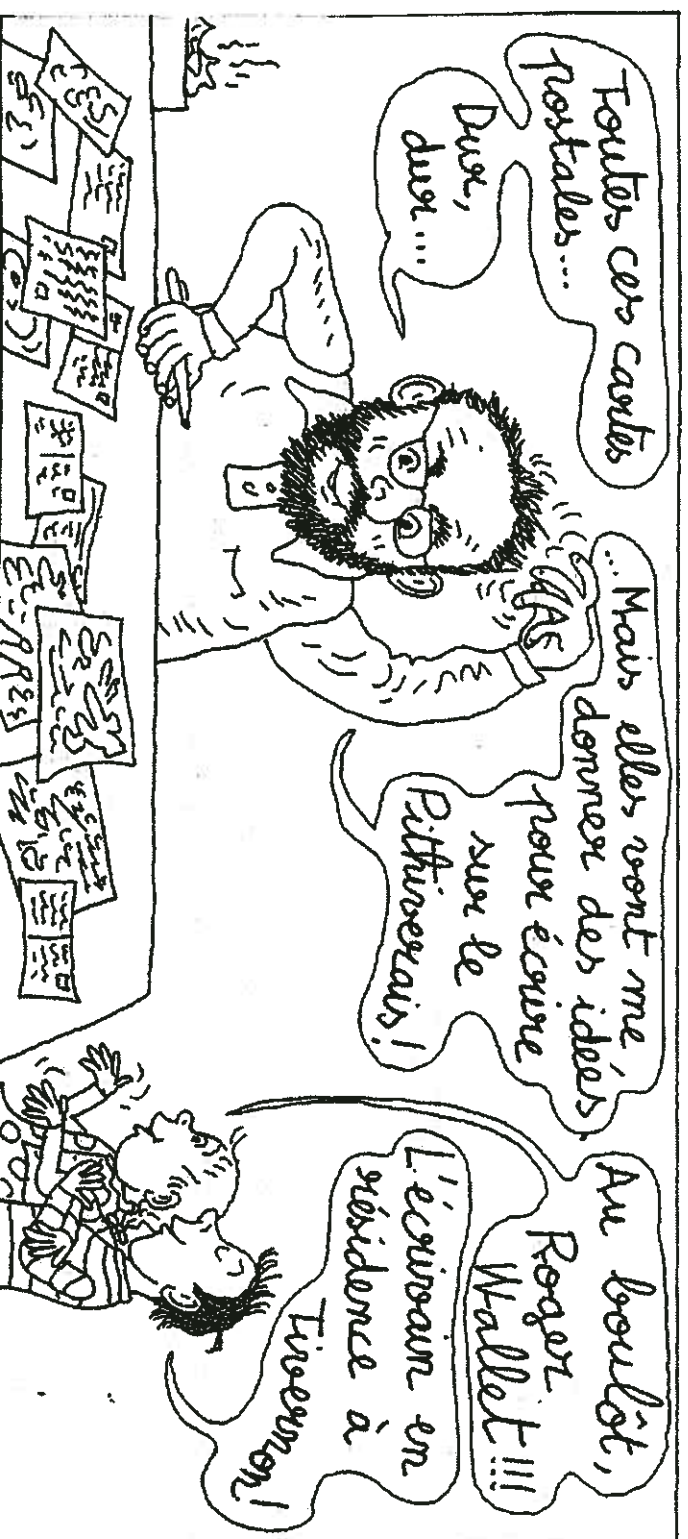 Toutes ces cartes
postales...
Dur,
dur...
... Mais elles vont me
donner des idées
pour écrire
sur le
Pithiverais !
Au boulôt,
Roger
Wallet !!!
L'écrivain en
résidence à
Tivernon !